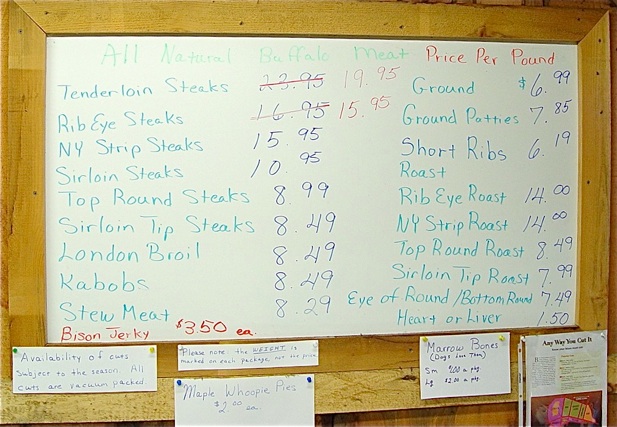 All Natural Buffalo Meat Price Per Pound
Tenderloin Steaks 23.95 19.95
Rib Eye Steaks 16.95 15.95
NY Strip Steaks 15.95
Sirloin Steaks 10.95
Top Round Steaks 8.99
Sirloin Tip Steaks 8.49
London Broil 8.49
Kabobs 8.49
Stew Meat 8.29
Bison Jerky $3.50 ea.
Ground $6.99
Ground Patties 7.85
Short Ribs 6.19
Roast
Rib Eye Roast 14.00
NY Strip Roast 14.00
Top Round Roast 8.49
Sirloin Tip Roast 7.99
Eye of Round/Bottom Round 7.49
Heart or Liver 1.50
Availability of cuts
subject to the season. All
cuts are vacuum packed
Please note: the WEIGHT is
marked on each package not the price.
Maple Whoopie Pies
$2.00 ea.
Marrow Bones
(Dogs Love Them)
Sm 1.00 a pkg.
Lg $2.00 a pkg.
Any Way You Cut It